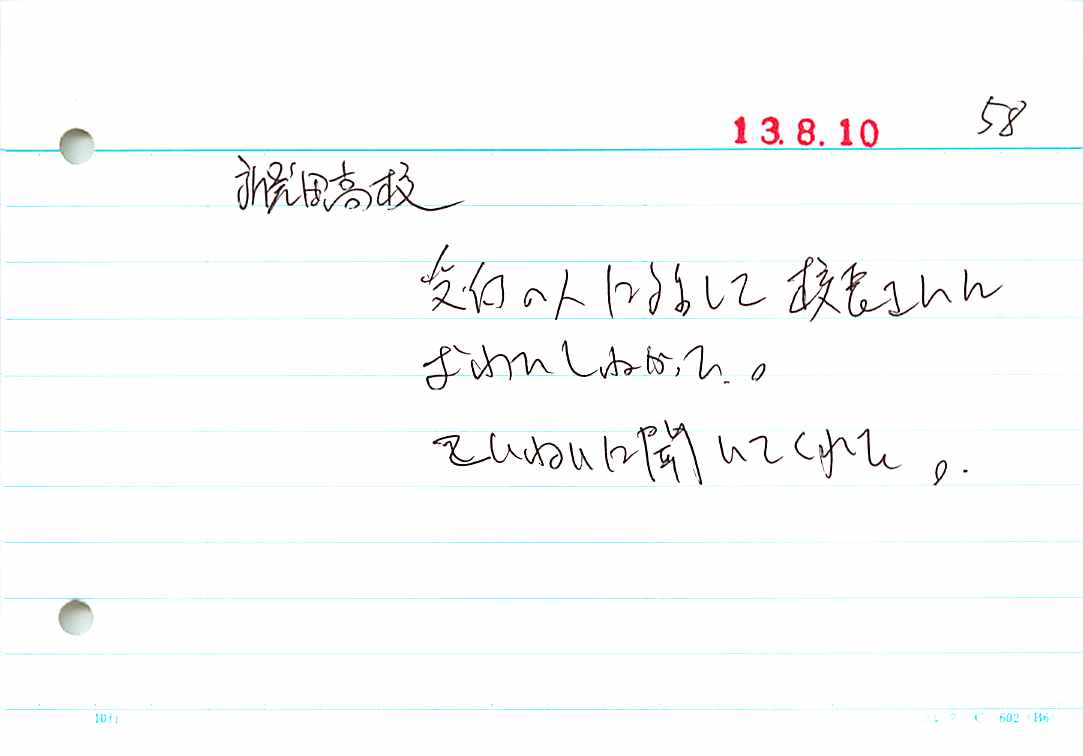 13.8.10 58
新発田高校
受付の人に話して校長さんに
お願いしたかった。
ていねいに聞いてくれた。
602 B6